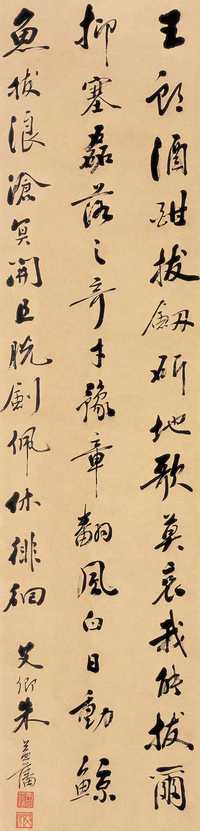 王郎酒酣拔劒斫地歌莫哀我能拔爾
抑塞磊落之奇才豫章翻風白日動鯨
魚拔浪滄冥開且脫劍佩休徘徊 艾卿朱益藩